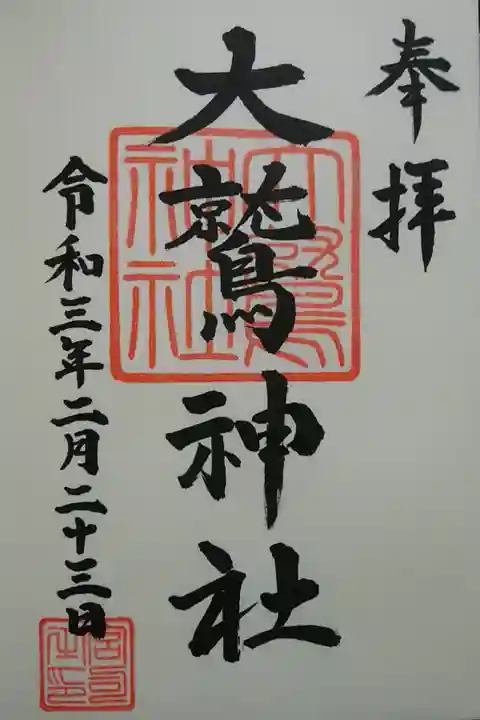 奉拝
大鷲神社
令和三年二月二十三日
大鷲神社
宮司之印